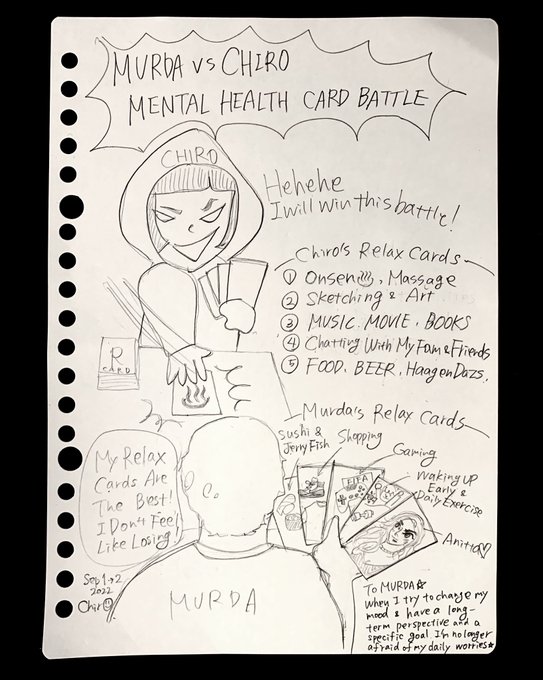 MURDA VS CHIRO
MENTAL HEALTH CARD BATTLE
CHIRO
Hehehe
I will win this battle!
Chiro's Relax Cards
① Onsen♨, Massage
② Sketching & Art
③ MUSIC, MOVIE, BOOKS
④ Chatting With My Fam & Friends
⑤ FOOD, BEER, HaagenDazs,
R
CARD
Murda's Relax Cards
Sushi &
Jerry Fish
Shopping
Gaming
Waking up
Early &
Daily Exercise
Anitta♡
FIFA
My Relax
Cards Are
The Best!
I Don't Feel
Like Losing!
Sep 1→2
2022
Chiro☺
MURDA
To MURDA☆
When I try to change my
mood & have a long-
term perspective and a
specific goal. I'm no longer
afraid of my daily worries★